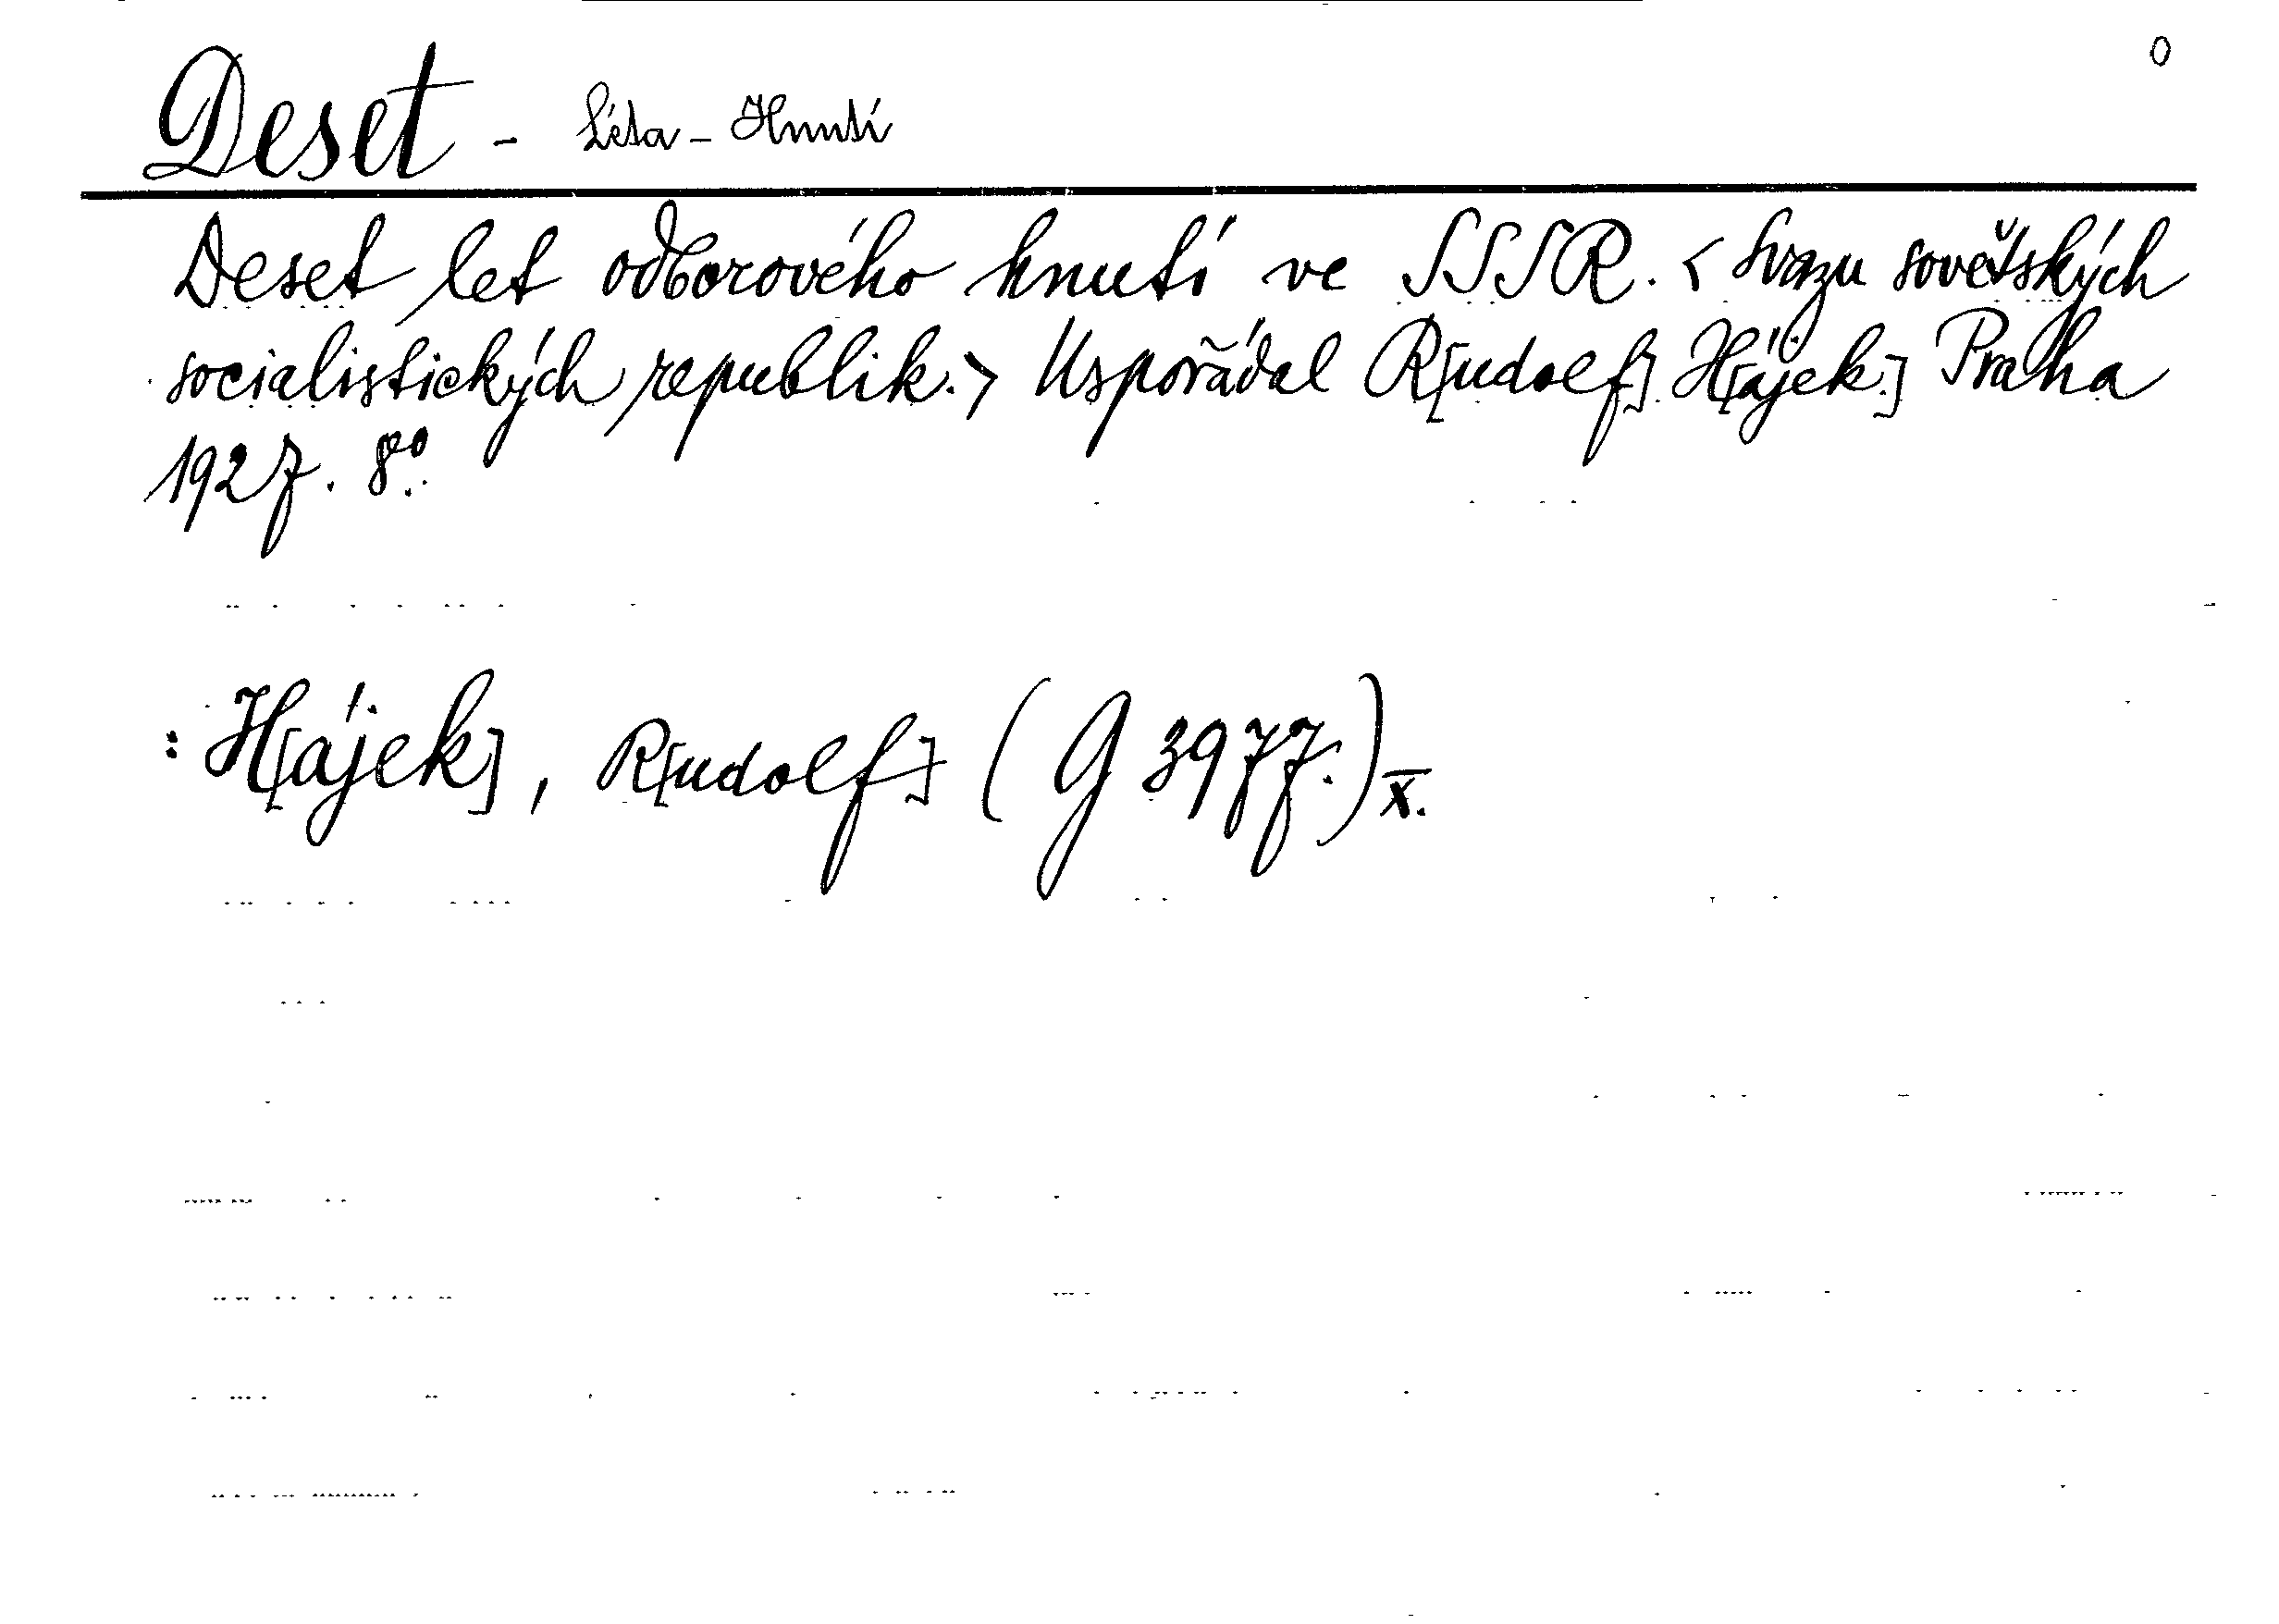 0
Deset - Léta - Hnutí
Deset let odborového hnutí ve SSSR. < Svazu sovětských
socialistických republik. > Uspořádal R[udolf] H[ájek.] Praha
1927. 8°.
: H[ájek], R[udolf] (G 3977.) X.